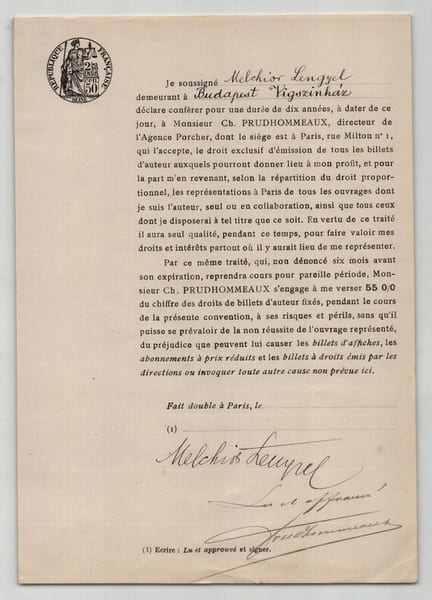 RÉPUBLIQUE FRANÇAISE
50c
Je soussigné Melchior Lengyel
demeurant à Budapest Vigszinház
déclare conférer pour une durée de dix années, à dater de ce
jour, à Monsieur Ch. PRUDHOMMEAUX, directeur de
l'Agence Porcher, dont le siège est à Paris, rue Milton nº 1,
qui l'accepte, le droit exclusif d'émission de tous les billets
d'auteur auxquels pourront donner lieu à mon profit, et pour
la part m'en revenant, selon la répartition du droit propor-
tionnel, les représentations à Paris de tous les ouvrages dont
je suis l'auteur, seul ou en collaboration, ainsi que tous ceux
dont je disposerai à tel titre que ce soit. En vertu de ce traité
il aura seul qualité, pendant ce temps, pour faire valoir mes
droits et intérêts partout où il y aurait lieu de me représenter.
Par ce même traité, qui, non dénoncé six mois avant
son expiration, reprendra cours pour pareille période, Mon-
sieur Ch. PRUDHOMMEAUX s'engage à me verser 55 0/0
du chiffre des droits de billets d'auteur fixés, pendant le cours
de la présente convention, à ses risques et périls, sans qu'il
puisse se prévaloir de la non réussite de l'ouvrage représenté,
du préjudice que peuvent lui causer les billets d'affiches, les
abonnements à prix réduits et les billets à droits émis par les
directions ou invoquer toute autre cause non prévue ici.
Fait double à Paris, le
(1)
Melchior Lengyel
Lu et approuvé
Prudhommeaux
(1) Ecrire : Lu et approuvé et signer.